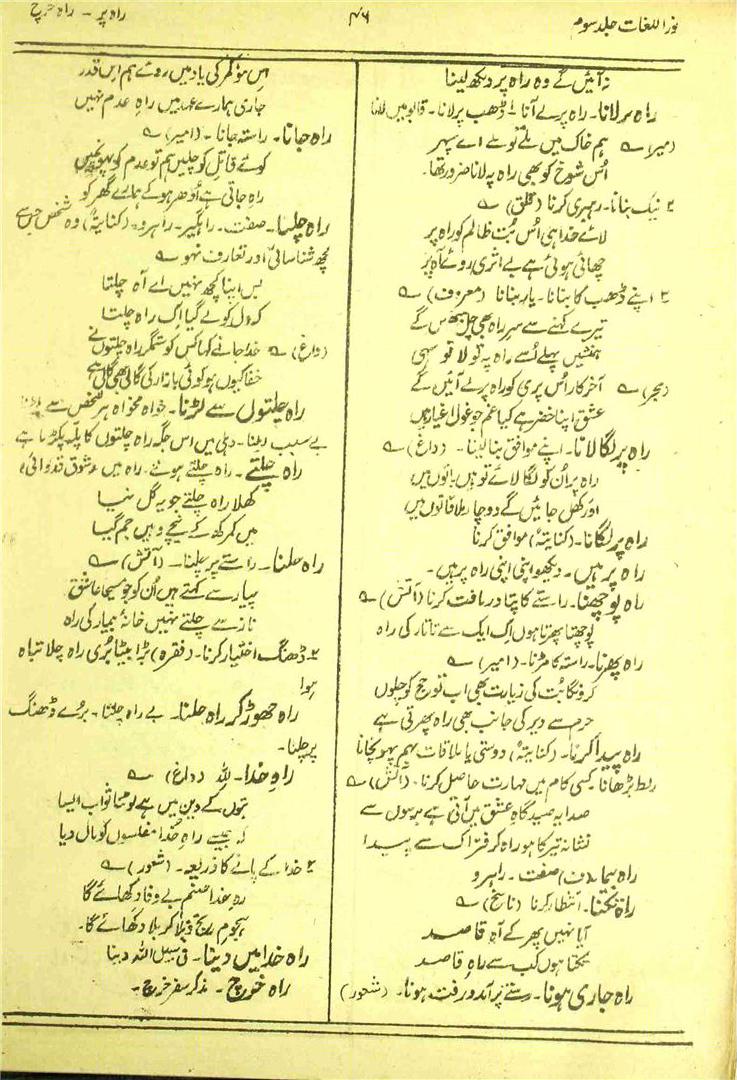 نور اللغات جلد سوم
۴۶
راہ پر - راہ خرچ
نہ آئیں گے وہ راہ پر دیکھ لینا
راہ پر لانا۔ راہ پر لے آنا۔ ڈھب پر لانا۔ قابو میں لانا
(میر) ہم خاک میں ملے تو ملے اے سپہر
اُس شوخ کو بھی راہ پہ لانا ضرور تھا۔
۲ نیک بنانا۔ رہبری کرنا (قلق)
لائے خدا ہی اُس بُت ظالم کو راہ پر
چھائی ہوئی ہے بے اثری روئے آہ پر
۳ اپنے ڈھب کا بنانا۔ یار بنانا (معروف)
تیرے کہنے سے سر راہ بھی چل بیٹھیں گے
ہمنشیں پہلے اُسے راہ پہ تو لا تو سہی
(بحر) آخر کار اُس پری کو راہ پر لے آئیں گے
عشق اپنا خضر ہے کیا غم جو غول اغیار ہیں
راہ پر لگا لانا۔ اپنے موافق بنا لینا۔ (داغ)
راہ پر اُن کو لگا لائے تو ہیں باتوں میں
اور کھل جائیں گے دو چار ملاقاتوں میں
راہ پر لگانا۔ (کنایتہً) موافق کرنا
راہ پر ہیں۔ دیکھو اپنی اپنی راہ پر ہیں۔
راہ پوچھنا۔ راستے کا پتا دریافت کرنا (آتش)
پوچھتا پھرتا ہوں اک ایک سے تاتار کی راہ
راہ پھرنا۔ راستہ کا مڑنا۔ (امیر)
کرونگا بُت کی زیارت بھی اب تو حج کو چلوں
حرم سے دیر کی جانب بھی راہ پھرتی ہے
راہ پیدا کرنا۔ (کنایتہً) دوستی یا ملاقات بہم پہونچانا
ربط بڑھانا۔ کسی کام میں مہارت حاصل کرنا۔ (آتش)
صدا یہ صید گاہ عشق میں آتی ہے برسوں سے
نشانہ تیر کا ہو راہ کر فتراک سے پیدا
راہ پیما۔ (ف) صفت۔ راہرو
راہ تکنا۔ انتظار کرنا (ناسخ)
آیا نہیں پھر کے آہ قاصد
تکتا ہوں کب سے راہ قاصد
راہ جاری ہونا۔ رستے پر آمد و رفت ہونا۔ (شعور)
اس مو کمر کی یاد میں روئے ہم اس قدر
جاری ہمارے عہد میں راہ عدم نہیں
راہ جانا۔ راستہ جانا۔ (امیر)
کوئے قاتل کو چلیں ہم تو عدم کو پہونچیں
راہ جاتی ہے اُدھر ہو کے ہمارے گھر کو
راہ چلتا۔ صفت۔ راہگیر۔ راہرو۔ (کنایتہً) وہ شخص جس سے
کچھ شناسائی اور تعارف نہو
بس اپنا کچھ نہیں اے آہ چلتا
کہ دل کو لے گیا اک راہ چلتا
(داغ) خدا جانے کہا کس کو ستمگر راہ چلتوں نے
خفا کیوں ہو کوئی بازار کی گالی بھی گالی ہے
راہ چلتوں سے لڑنا۔ خواہ مخواہ ہر شخص سے
بے سبب لڑنا۔ دہلی میں اس جگہ راہ چلتوں کا پلّہ پکڑنا ہے
راہ چلتے۔ راہ چلتے ہوئے۔ راہ میں
کھلا راہ چلتے جو یہ گل نیا
میں کمرکھ کے نیچے وہیں جم گیا
راہ چلنا۔ راستے پر چلنا۔ (آتش)
پیار سے کہتے ہیں اُن کو جو مسیحا عاشق
ناز سے چلتے نہیں خانۂ بیمار کی راہ
۲ ڈھنگ اختیار کرنا۔ (فقرہ) بڑا بیٹا بُری راہ چلا تباہ
ہوا
راہ چھوڑ کر راہ چلنا۔ بے راہ چلنا۔ بُرے ڈھنگ
پر چلنا۔
راہِ خدا۔ للہ (داغ)
بتوں کے دین میں ہے لوٹنا ثواب ایسا
کہ جیسے راہِ خدا مفلسوں کو مال دیا
۲ خدا کے پانے کا ذریعہ۔ (شعور)
رہِ خدا صنم بے وفا دکھائے گا
ہجوم رنج و بلا کربلا دکھائے گا۔
راہ خدا میں دینا۔ فی سبیل اللہ دینا
راہ خرچ۔ مذکر سفر خرچ۔